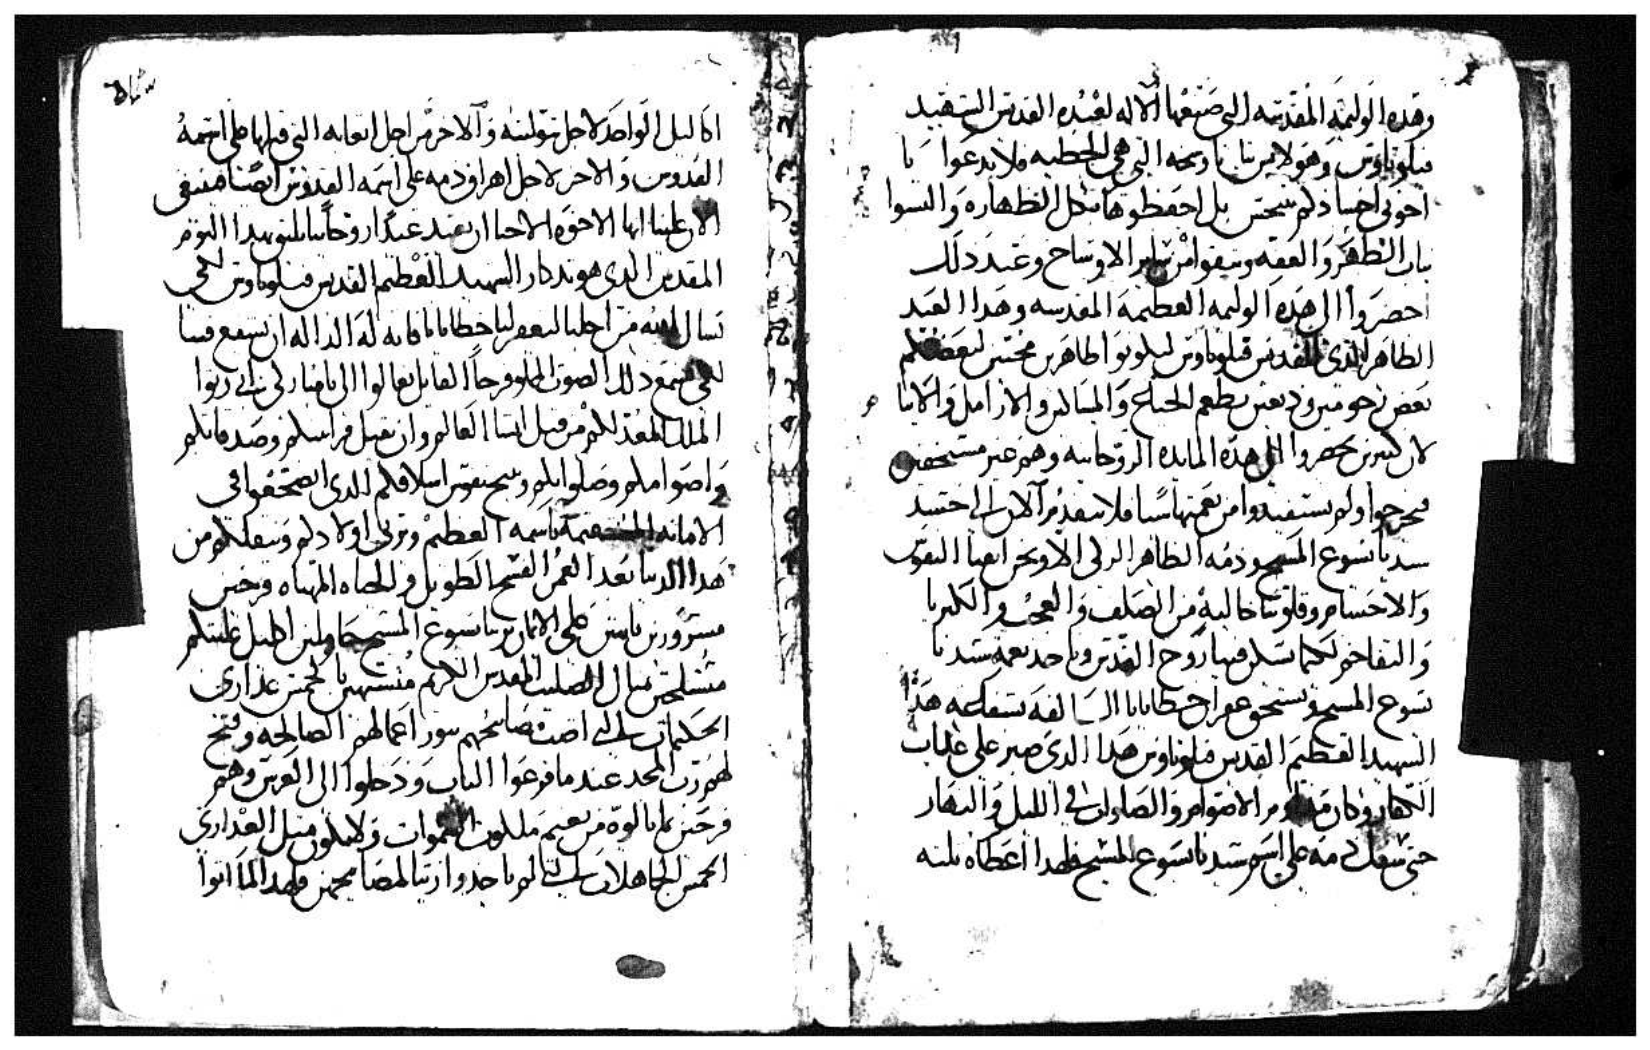 وهده الوليمه المقدسه التي صنعها الاله لعبده القديس الشهيد
فيلوتاوس وهولا من بنا باوسخه التي هي الخطيه فلا يدعوا يا
اخوتي اجسادكم تنجس بل احفظوها بكل الطهاره والبسوا
تياب الطهر والعفه وتنقوا من ساير الاوساخ وعند دلك
احضروا الى هده الوليمه العظيمه المقدسه وهدا العيد
الطاهر الذي القديس فيلوتاوس لتكونوا طاهرين محبين لبعضكم
بعض رحومين ودعين تطعم الجياع والمساكين والارامل والايتا
لان كتيرين حضروا الى هده المايده الروحانيه وهم غير مستحقين
فخرجوا ولم يستفيدوا من نعمتها شيا فلا نتقدم الان الى جسد
سيدنا يسوع المسيح ودمه الطاهر الزكي الا ونحن انقيا النفوس
والاجسام وقلوبنا خاليه من الصلف والعجب والكبريا
والتفاخر لكيما تسكن فينا روح القدس وناخد نعمه سيدنا
يسوع المسيح ونستحق غفران خطايانا السالفه بشفاعه هدا
الشهيد العظيم القديس فيلوتاوس هدا الدى صبر على عداب
الكفار وكان مداوم الاصوام والصلوات في الليل والنهار
حتى سفك دمه على اسم سيدنا يسوع المسيح فلهدا اعطاه تلته
اكاليل الواحد لاجل بتوليته والاخر من اجل اتعابه التي قبلها على اسمه
القدوس والاخر لاجل اهراق دمه على اسمه القدوس ايضا فينبغى
الان علينا ايها الاخوه الاحبا ان نعيد عيدا روحانيا لنتهدا اليوم
المقدس الدى هو تدكار الشهيد العظيم القديس فيلوتاوس لكى
نسال الله من اجلنا ليغفر لنا خطايانا فانه له الداله ان يشفع فينا
لكى نسمع دلك الصوت المملو فرحا القايل تعالوا الى يا مباركى ابى رتوا
الملك المعد لكم من قبل انشا العالم وان يقبل قرابينكم وصدقاتكم
واصوامكم وصلواتكم وينيح نفوس اسلافكم الدى انضجعوا في
الامانه المستقيمه باسمه العظيم ويربى اولادكم وينقلكم من
هدا الدنيا بعد العمر الفسح الطويل والحياه المهناه فرحين
مسرورين تابتين على الايمان بربنا يسوع المسيح حاملين اكليل غلبتكم
متسلحين بمتال الصليب المقدس الكريم متشبهين بالخمس عدارى
الحكيمات اللى اضت مصابيحهم بنور اعمالهم الصالحه وفتح
لهم رب المجد عند ما قرعوا الباب ودخلوا الى العرس وهم
فرحين بما نالوه من نعيم ملكوت السموات ولا تكون متل العدارى
الخمس الجاهلات اللى لم ياخدوا زيتا لمصابيحهن فلهدا لما اتوا